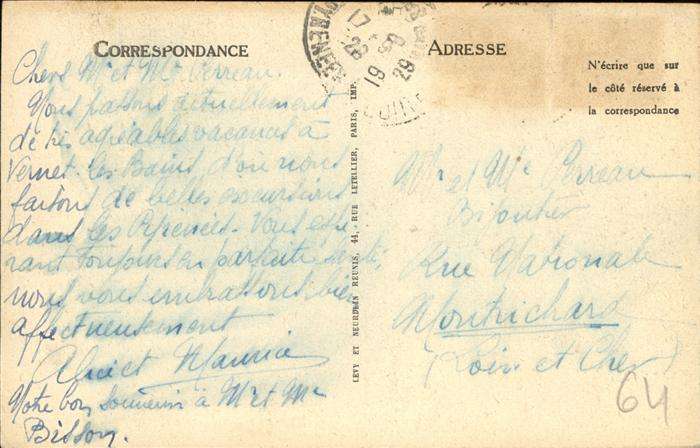 CORRESPONDANCE
Chers Mr et Me Perreau.
Nous passons actuellement
de très agréables vacances à
Vernet-les-Bains d'où nous
faisons de belles excursions
dans les Pyrénées. Vous espé-
rant toujours en parfaite santé,
nous vous embrassons bien
affectueusement
Maurice
Notre bon souvenir à Mr et Me
Bisson.
LEVY ET NEURDEIN REUNIS, 44, RUE LETELLIER, PARIS, IMP.
17
28
19 29
ADRESSE
N'écrire que sur
le côté réservé à
la correspondance
Mr et Me Perreau
Bijoutier
Rue Nationale
Montrichard
(Loir et Cher)
64